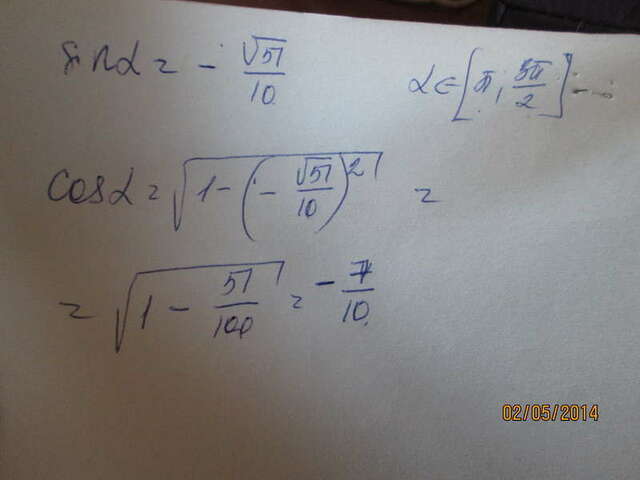 sinα = - √51/10 α∈[π, 3π/2] -
cosα = √(1-(-√51/10)²) =
= √(1 - 51/100) = -7/10
02/05/2014